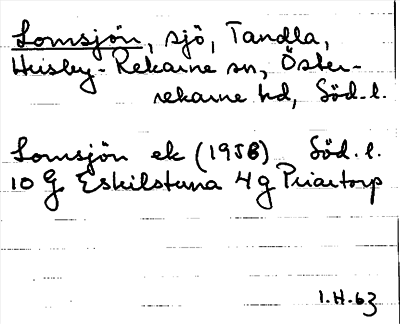 Lomsjön, sjö, Tandla,
Husby-Rekarne sn, Öster-
rekarne hd, Söd. l.
Lomsjön ek (1958) Söd. l.
10 G Eskilstuna 4 g Priartorp
1.H.63